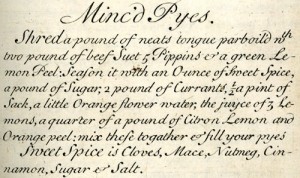 Minc'd Pyes.
Shred a pound of neats tongue parboil'd wth
two pound of beef Suet 5 Pippins & a green Le-
mon Peel: Season it with an Ounce of Sweet Spice,
a pound of Sugar, 2 pound of Currants, ½ a pint of
Sack, a little Orange flower water, the juyce of 3 Le-
mons, a quarter of a pound of Citron Lemon and
Orange peel: mix these together & fill your pyes
Sweet Spice is Cloves, Mace, Nutmeg, Cin-
namon, Sugar & Salt.